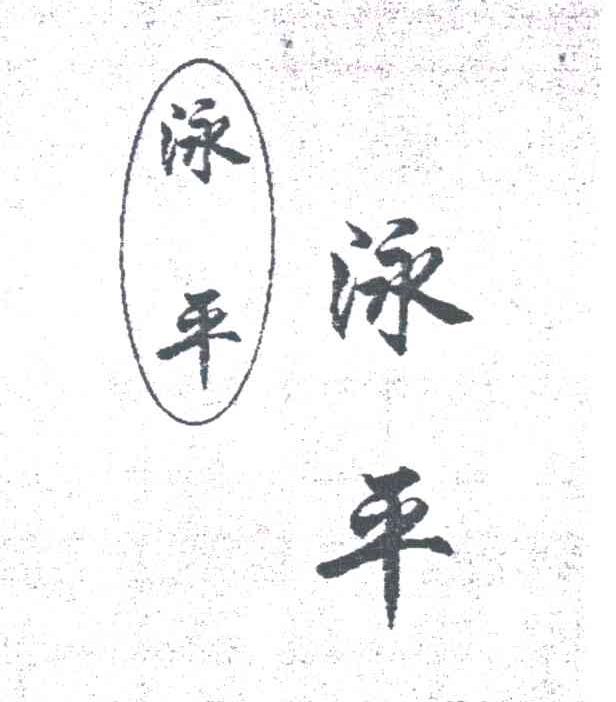 泳平
泳平